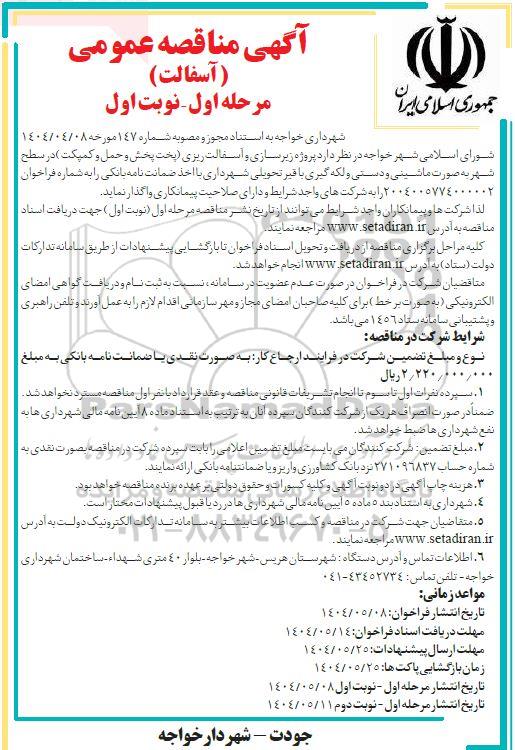 جمهوری اسلامی ایران
آگهی مناقصه عمومی
(آسفالت)
مرحله اول-نوبت اول
شهرداری خواجه به استناد مجوز و مصوبه شماره ۱۴۷ مورخه ۱۴۰۴/۰۴/۰۸
شورای اسلامی شهر خواجه در نظر دارد پروژه زیرسازی و آسفالت ریزی (پخت پخش و حمل و کمپکت) در سطح
شهر به صورت ماشینی و دستی و لکه گیری با قیر تحویلی شهرداری با اخذ ضمانت نامه بانکی را به شماره فراخوان
۲۰۰۴۰۰۵۷۷۴۰۰۰۰۰۲ را به شرکت های واجد شرایط و دارای صلاحیت پیمانکاری واگذار نماید.
لذا شرکت ها و پیمانکاران واجد شرایط می توانند از تاریخ نشر مناقصه مرحله اول (نوبت اول) جهت دریافت اسناد
مناقصه به آدرس www.setadiran.ir مراجعه نمایند.
کلیه مراحل برگزاری مناقصه از دریافت و تحویل اسناد فراخوان تا بازگشایی پیشنهادات از طریق سامانه تدارکات
دولت (ستاد) به آدرس www.setadiran.ir انجام خواهد شد.
متقاضیان شرکت در فراخوان در صورت عدم عضویت در سامانه، نسبت به ثبت نام و دریافت گواهی امضای
الکترونیکی (به صورت بر خط) برای کلیه صاحبان امضای مجاز و مهر سازمانی اقدام لازم را به عمل آورند و تلفن راهبری
و پشتیبانی سامانه ستاد ۱۴۵۶ می باشد.
شرایط شرکت در مناقصه:
نوع و مبلغ تضمین شرکت در فرایند ارجاع کار: به صورت نقدی یا ضمانت نامه بانکی به مبلغ
۲/۲۲۰/۰۰۰/۰۰۰ ریال
۱. سپرده نفرات اول تا سوم تا انجام تشریفات قانونی مناقصه و عقد قرارداد با نفر اول مناقصه مسترد نخواهد شد.
ضمنا در صورت انصراف هر یک از شرکت کنندگان سپرده آنان به ترتیب به استناد ماده ۸ آیین نامه مالی شهرداری ها به
نفع شهرداری ها ضبط خواهد شد.
۲. مبلغ تضمین: شرکت کنندگان می بایست مبلغ تضمین اعلامی را بابت سپرده شرکت در مناقصه بصورت نقدی به
شماره حساب ۲۷۱۰۹۶۸۳۷ نزد بانک کشاورزی واریز و یا ضمانتنامه بانکی ارائه نمایند.
۳. هزینه چاپ آگهی در دو نوبت آگهی و کلیه کسورات و حقوق دولتی بر عهده برنده مناقصه خواهد بود.
۴. شهرداری به استناد بند ۵ ماده ۵ آیین نامه مالی شهرداری ها در رد یا قبول پیشنهادات مختار است.
۵. متقاضیان جهت شرکت در مناقصه و کسب اطلاعات بیشتر به سامانه تدارکات الکترونیک دولت به آدرس
www.setadiran.ir مراجعه نمایند.
۶. اطلاعات تماس و آدرس دستگاه: شهرستان هریس-شهر خواجه-بلوار ۴۰ متری شهداء-ساختمان شهرداری
خواجه - تلفن تماس: ۴۳۴۵۲۷۳۴-۰۴۱
مواعد زمانی:
تاریخ انتشار فراخوان: ۱۴۰۴/۰۵/۰۸
مهلت دریافت اسناد فراخوان: ۱۴۰۴/۰۵/۱۴
مهلت ارسال پیشنهادات: ۱۴۰۴/۰۵/۲۵
زمان بازگشایی پاکت ها: ۱۴۰۴/۰۵/۲۵
تاریخ انتشار مرحله اول-نوبت اول ۱۴۰۴/۰۵/۰۸
تاریخ انتشار مرحله اول-نوبت دوم ۱۴۰۴/۰۵/۱۱
جودت - شهردار خواجه